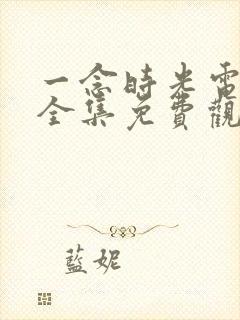 一念時光電
全集免費觀
藍妮